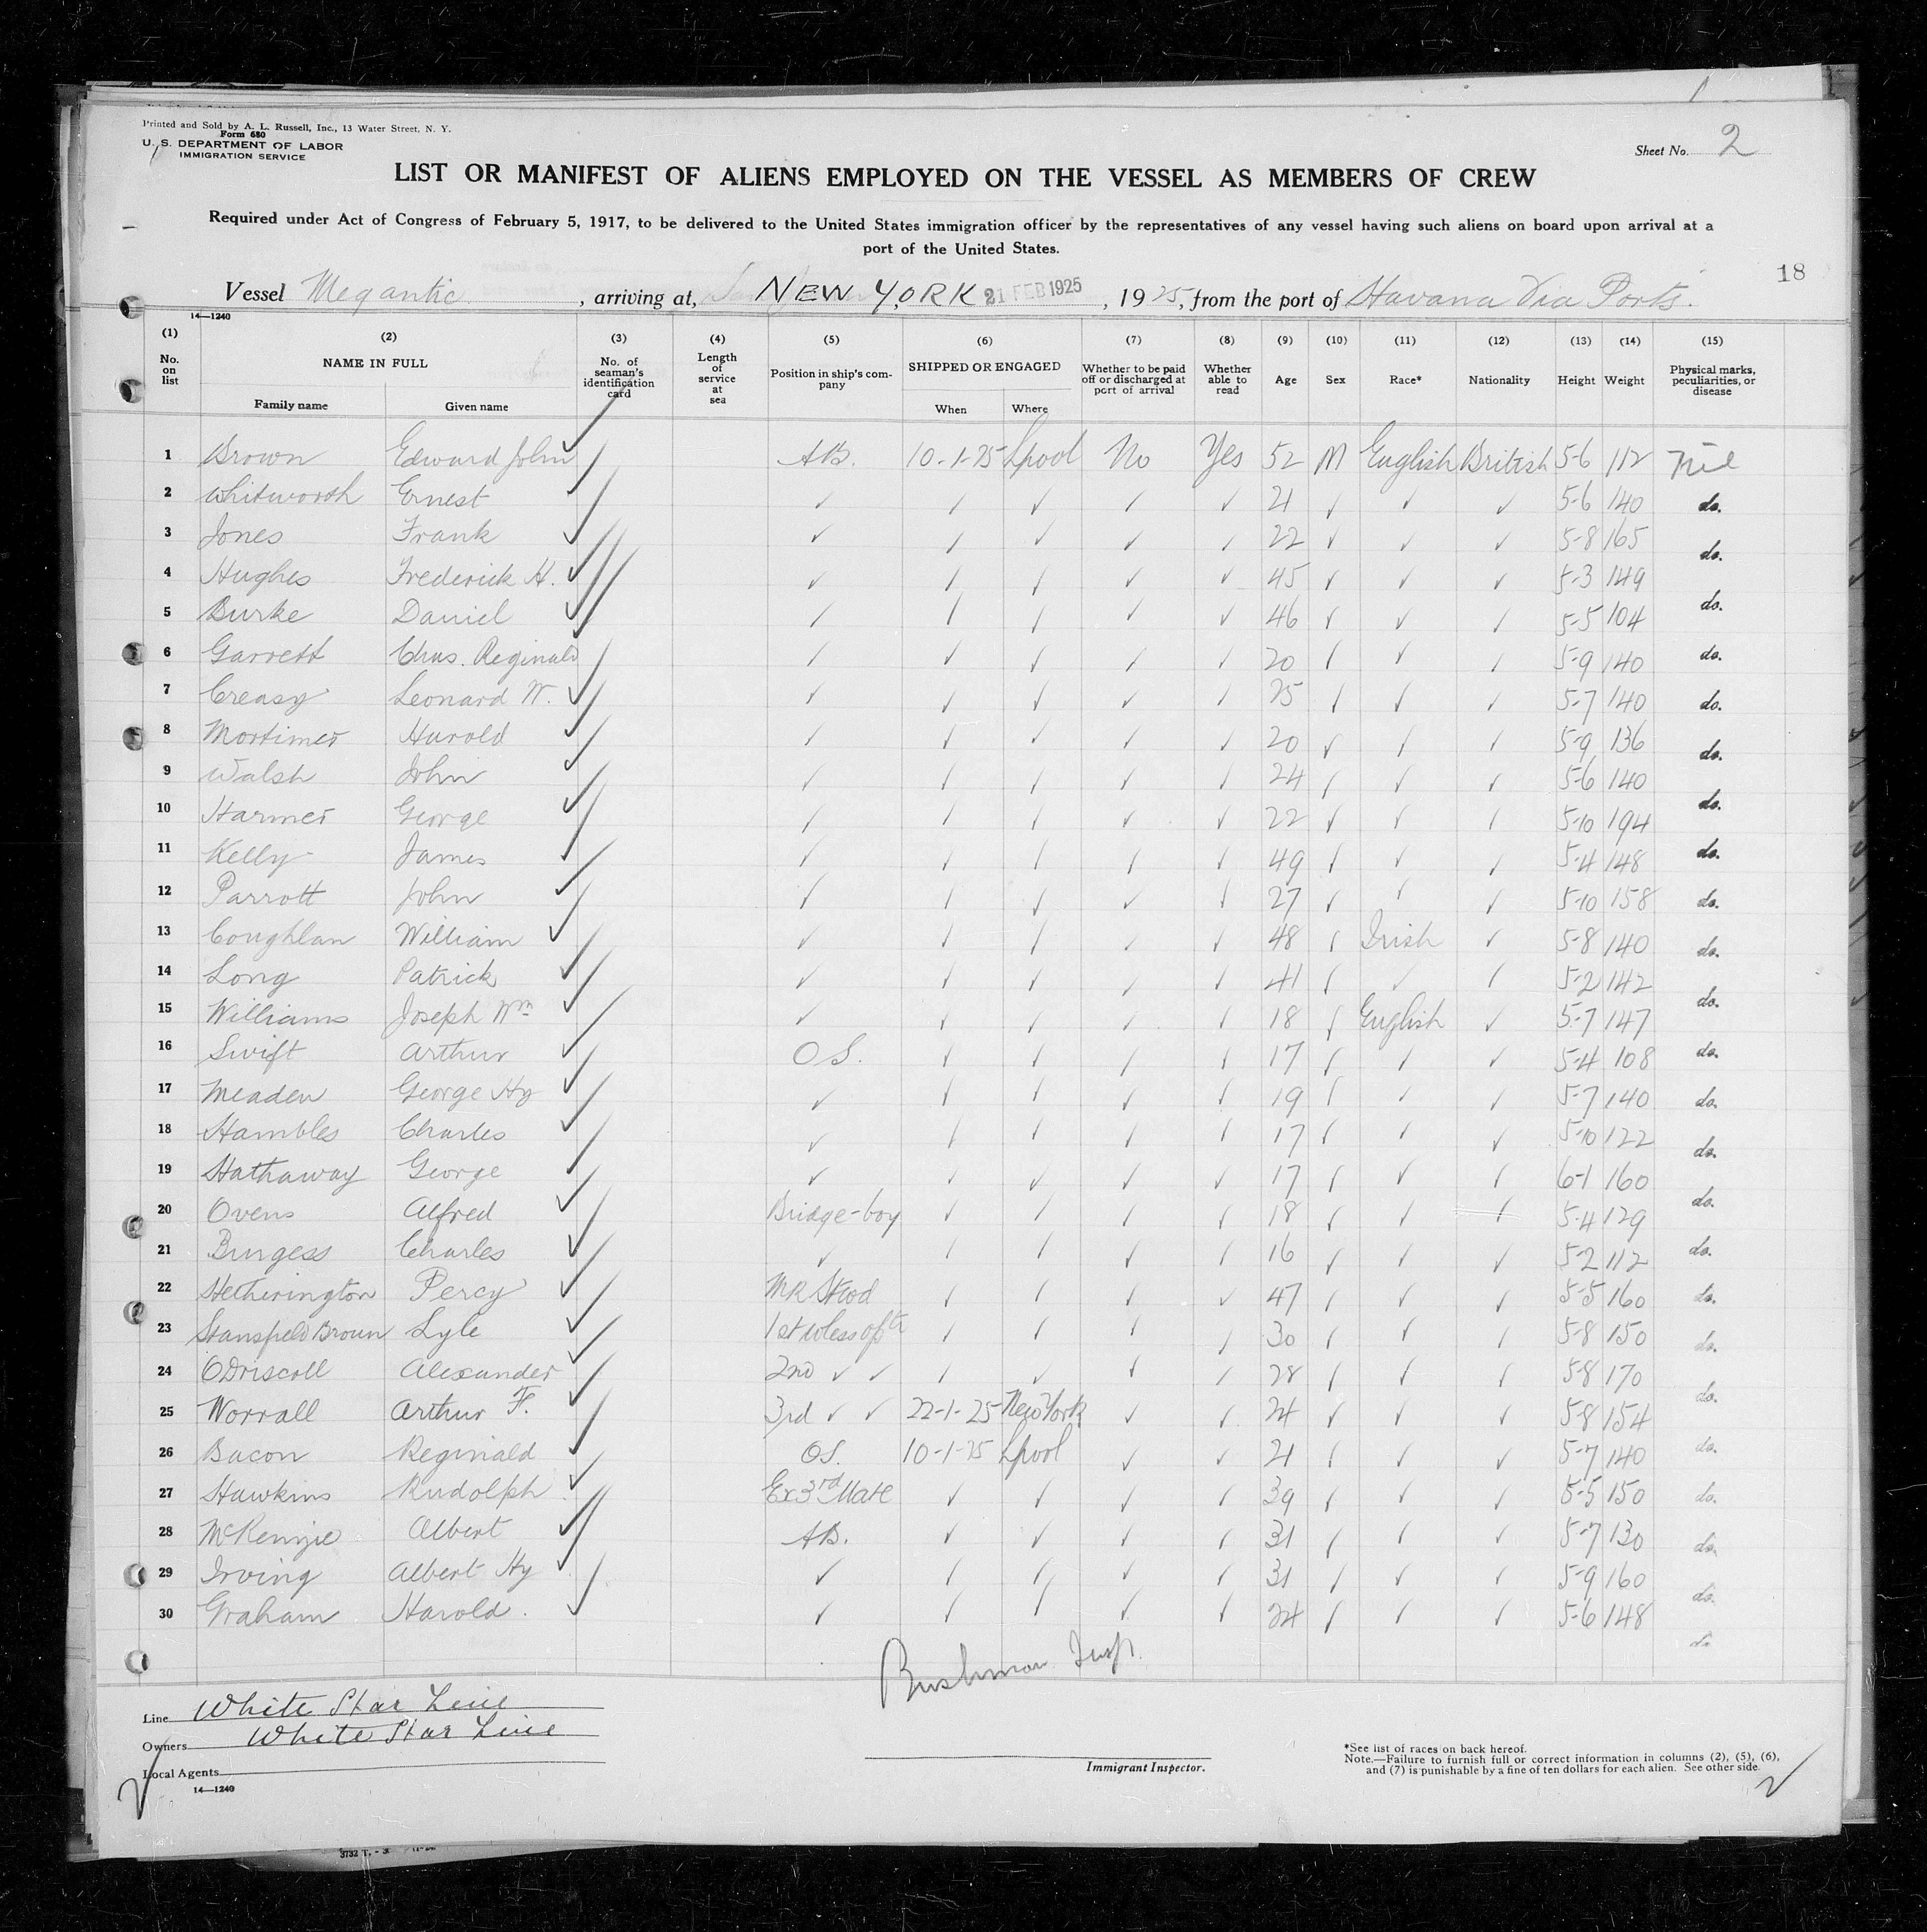 Printed and Sold by A. L. Russell, Inc., 13 Water Street, N. Y.
Form 680
U. S. DEPARTMENT OF LABOR
IMMIGRATION SERVICE
Sheet No. 2
LIST OR MANIFEST OF ALIENS EMPLOYED ON THE VESSEL AS MEMBERS OF CREW
Required under Act of Congress of February 5, 1917, to be delivered to the United States immigration officer by the representatives of any vessel having such aliens on board upon arrival at a
port of the United States.
18
Vessel Megantic, arriving at, NEW YORK 21 FEB 1925, 1925, from the port of Havana Via Ports.
14—1240
(1) (2) (3) (4) (5) (6) (7) (8) (9) (10) (11) (12) (13) (14) (15)
No. on list NAME IN FULL Family name Given name No. of seaman's identification card Length of service at sea Position in ship's company SHIPPED OR ENGAGED When Where Whether to be paid off or discharged at port of arrival Whether able to read Age Sex Race* Nationality Height Weight Physical marks, peculiarities, or disease
1 Brown Edward John ✓ AB. 10-1-25 Lpool No Yes 52 M English British 5-6 112 Nil
2 Whitworth Ernest ✓ ✓ ✓ ✓ ✓ ✓ 21 ✓ ✓ ✓ 5-6 140 do.
3 Jones Frank ✓ ✓ ✓ ✓ ✓ ✓ 22 ✓ ✓ ✓ 5-8 165 do.
4 Hughes Frederick H. ✓ ✓ ✓ ✓ ✓ ✓ 45 ✓ ✓ ✓ 5-3 149 do.
5 Burke Daniel ✓ ✓ ✓ ✓ ✓ ✓ 46 ✓ ✓ ✓ 5-5 104 do.
6 Garrett Chas. Reginald ✓ ✓ ✓ ✓ ✓ ✓ 20 ✓ ✓ ✓ 5-9 140 do.
7 Creasy Leonard W. ✓ ✓ ✓ ✓ ✓ ✓ 25 ✓ ✓ ✓ 5-7 140 do.
8 Mortimer Harold ✓ ✓ ✓ ✓ ✓ ✓ 20 ✓ ✓ ✓ 5-9 136 do.
9 Walsh John ✓ ✓ ✓ ✓ ✓ ✓ 24 ✓ ✓ ✓ 5-6 140 do.
10 Harmer George ✓ ✓ ✓ ✓ ✓ ✓ 22 ✓ ✓ ✓ 5-10 194 do.
11 Kelly James ✓ ✓ ✓ ✓ ✓ ✓ 49 ✓ ✓ ✓ 5-4 148 do.
12 Parrott John ✓ ✓ ✓ ✓ ✓ ✓ 27 ✓ ✓ ✓ 5-10 158 do.
13 Coughlan William ✓ ✓ ✓ ✓ ✓ ✓ 48 ✓ Irish ✓ 5-8 140 do.
14 Long Patrick ✓ ✓ ✓ ✓ ✓ ✓ 41 ✓ ✓ ✓ 5-2 142 do.
15 Williams Joseph Wm ✓ ✓ ✓ ✓ ✓ ✓ 18 ✓ English ✓ 5-7 147 do.
16 Swift Arthur ✓ O.S. ✓ ✓ ✓ ✓ 17 ✓ ✓ ✓ 5-4 108 do.
17 Meaden George Hy ✓ ✓ ✓ ✓ ✓ ✓ 19 ✓ ✓ ✓ 5-7 140 do.
18 Hambles Charles ✓ ✓ ✓ ✓ ✓ ✓ 17 ✓ ✓ ✓ 5-10 122 do.
19 Hathaway George ✓ ✓ ✓ ✓ ✓ ✓ 17 ✓ ✓ ✓ 6-1 160 do.
20 Ovens Alfred ✓ Bridge-boy ✓ ✓ ✓ ✓ 18 ✓ ✓ ✓ 5-4 129 do.
21 Burgess Charles ✓ ✓ ✓ ✓ ✓ ✓ 16 ✓ ✓ ✓ 5-2 112 do.
22 Hetherington Percy ✓ MR Stwd ✓ ✓ ✓ ✓ 47 ✓ ✓ ✓ 5-5 160 do.
23 Stansfeld Brown Lyle ✓ 1st wless optr ✓ ✓ ✓ ✓ 30 ✓ ✓ ✓ 5-8 150 do.
24 ODriscoll Alexander ✓ 2nd ✓ ✓ ✓ ✓ ✓ ✓ 28 ✓ ✓ ✓ 5-8 170 do.
25 Worrall Arthur F. ✓ 3rd ✓ ✓ 22-1-25 New York ✓ ✓ 24 ✓ ✓ ✓ 5-8 154 do.
26 Bacon Reginald ✓ OS. 10-1-25 Lpool ✓ ✓ 21 ✓ ✓ ✓ 5-7 140 do.
27 Hawkins Rudolph ✓ Ex 3rd Mate ✓ ✓ ✓ ✓ 39 ✓ ✓ ✓ 5-5 150 do.
28 McKenzie Albert ✓ AB. ✓ ✓ ✓ ✓ 31 ✓ ✓ ✓ 5-7 130 do.
29 Irving Albert Hy ✓ ✓ ✓ ✓ ✓ ✓ 31 ✓ ✓ ✓ 5-9 160 do.
30 Graham Harold. ✓ ✓ ✓ ✓ ✓ ✓ 24 ✓ ✓ ✓ 5-6 148 do.
Bushman Insp.
Line White Star Line
Owners White Star Line
Local Agents
14—1240
Immigrant Inspector.
*See list of races on back hereof.
Note.—Failure to furnish full or correct information in columns (2), (5), (6),
and (7) is punishable by a fine of ten dollars for each alien. See other side.